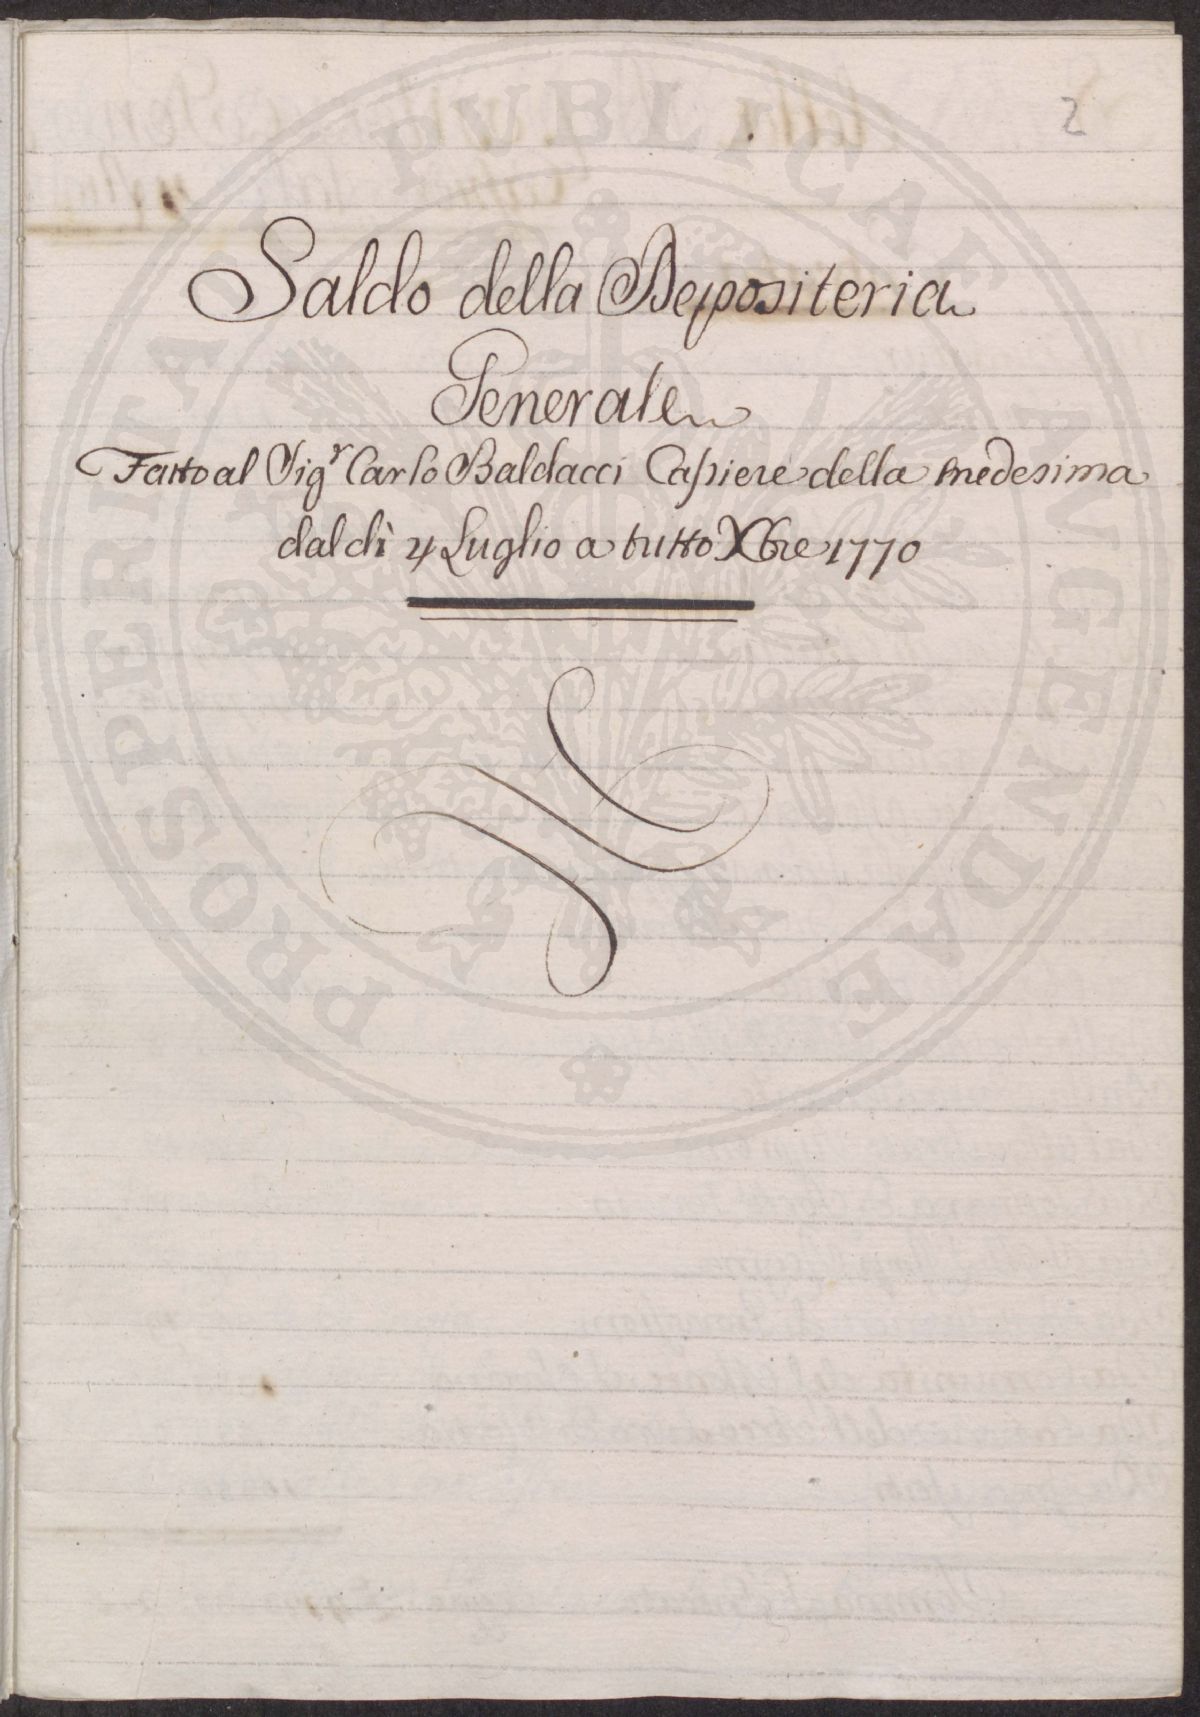 2
Saldo della Depositeria
Generale
Fatto al Sigr Carlo Baldacci Cassiere della medesima
dal dì 4 Luglio a tutto Xbre 1770
PROSPERITATI PUBLICAE AUGENDAE